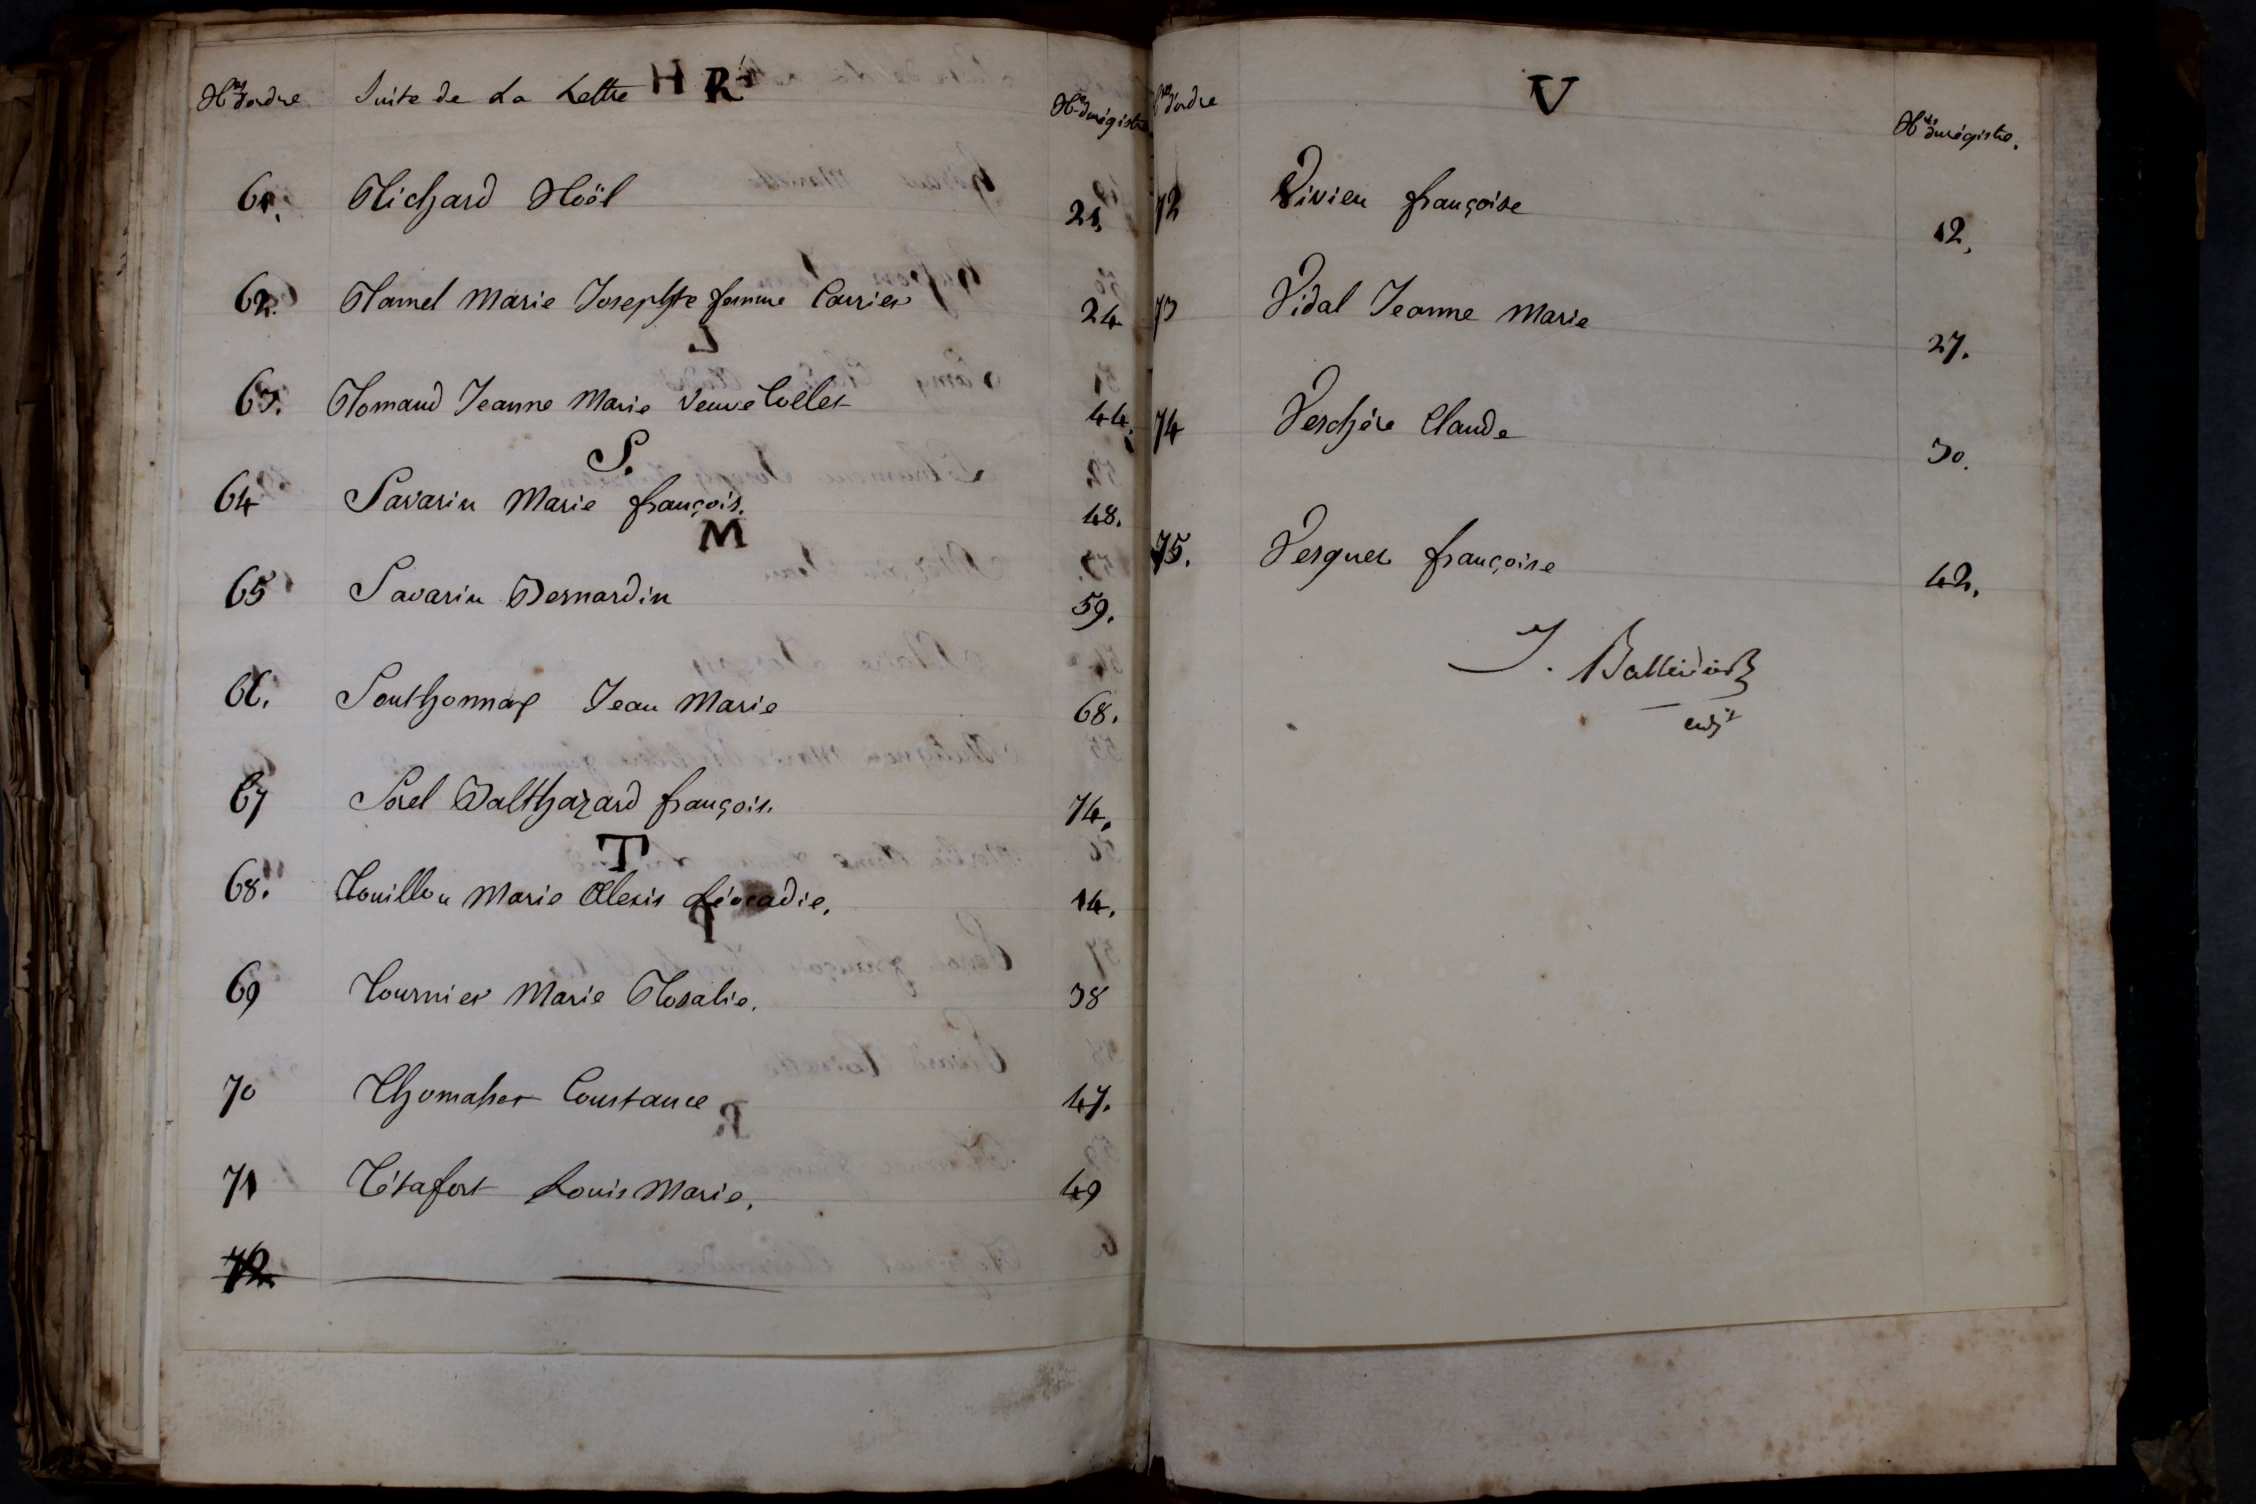 Nos d'ordre Suite de La Lettre R Nos du régistre
61. Richard Noël 21.
62. Ramel Marie Josephte femme Carrier 24
63. Romand Jeanne Marie veuve Collet 44.
S.
64 Savarin Marie françois. 48.
65 Savarin Bernardin 59.
66. Southonnax Jean Marie 68.
67 Sorel Balthazard françois. 74.
T
68. Touillon Marie Alexis Léocadie. 14.
69 Tournier Marie Rosalie. 38
70 Thomasset Constance 47.
71 Tétafort Louis Marie. 49
72.
Nos d'ordre V Nos du régistre.
72 Vivien françoise 12.
73 Vidal Jeanne Marie 27.
74 Verchère Claude 30.
75. Verguet françoise 42.
J.
adjt